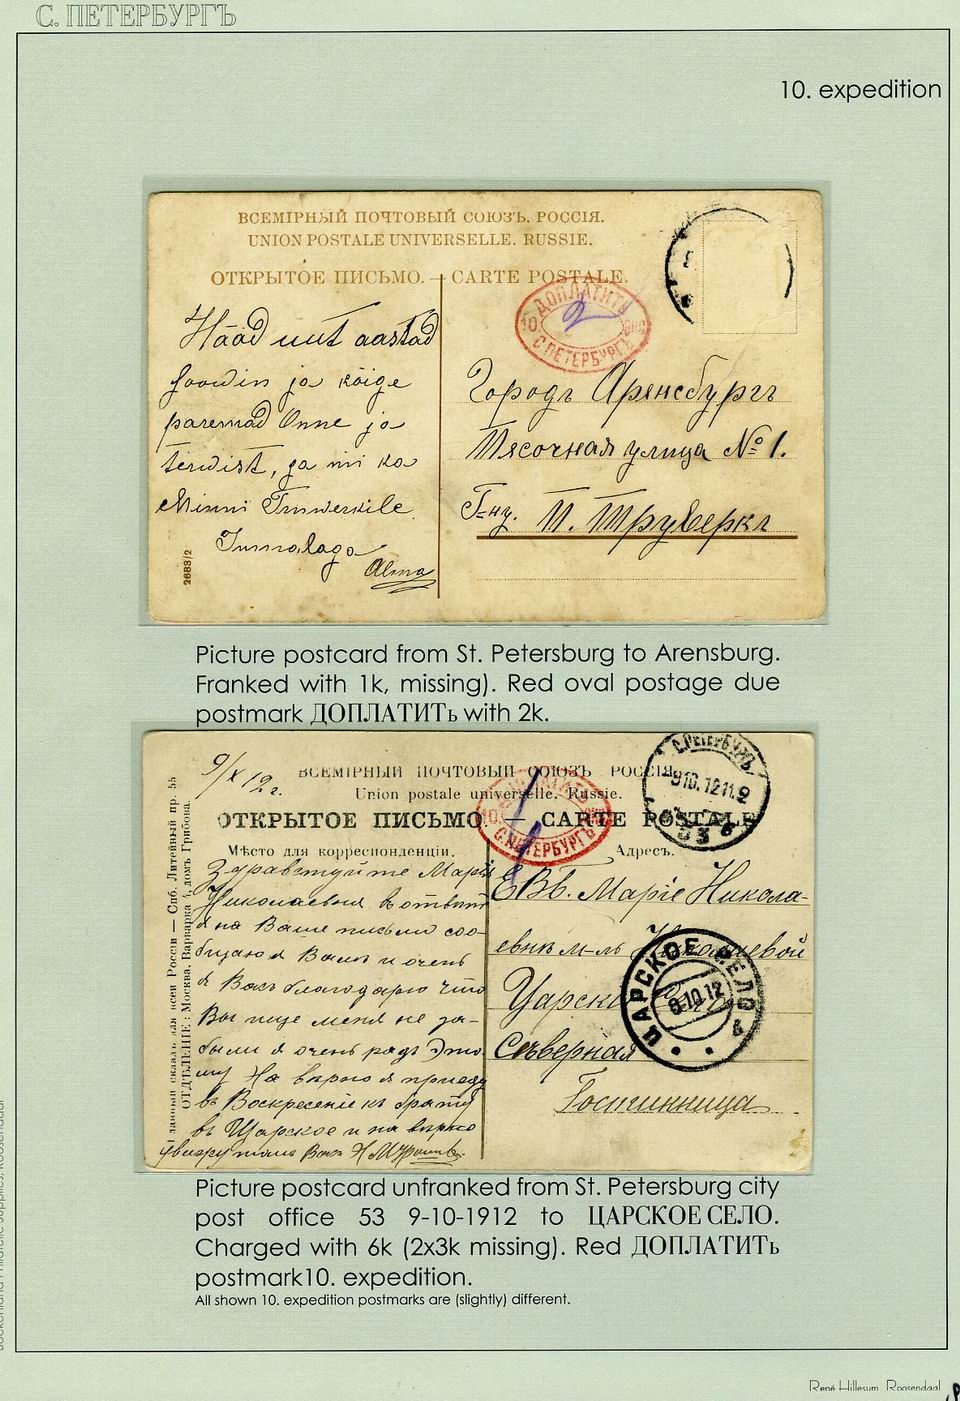 С. ПЕТЕРБУРГЪ
10. expedition
ВСЕМІРНЫЙ ПОЧТОВЫЙ СОЮЗЪ. РОССІЯ.
UNION POSTALE UNIVERSELLE. RUSSIE.
ОТКРЫТОЕ ПИСЬМО. — CARTE POSTALE.
ДОПЛАТИТЬ
10. 2
С. ПЕТЕРБУРГЪ
Hääd uut aastad
soowin ja kõige
paremad Õnne ja
terwist, ga mi ka
Minni
Alma
2683/2
Городъ Аренсбургъ
Пясочная улица № 1.
Г-ну. П.
Picture postcard from St. Petersburg to Arensburg.
Franked with 1k, missing). Red oval postage due
postmark ДОПЛАТИТЬ with 2k.
9/X 12 г.
ВСЕМІРНЫЙ ПОЧТОВЫЙ СОЮЗЪ РОССІЯ
Union postale universelle. Russie.
ОТКРЫТОЕ ПИСЬМО — CARTE POSTALE
Мѣсто для корреспонденціи.
Адресъ.
С. ПЕТЕРБУРГЪ
9 10. 12 11. 2
53
10.
С. ПЕТЕРБУРГЪ
Главный складъ для всей Россіи — Спб. Литейный пр. 55
ОТДѢЛЕНІЕ: Москва, Варварка, домъ Грибова.
Здравствуйте Марія
Николаевна в отвѣтъ
на Ваше письмо соо-
бщаю Вамъ и очень
Васъ благодарю что
Вы еще меня не за-
были я очень радъ Это
му На вѣрно я приеду
въ Воскресеніе къ брату
въ Царское и на вѣрно
ЕВб. Маріе Никола-
евнѣ м-ль
Царское
Сѣверная
Гостинница
ЦАРСКОЕ СЕЛО
9.10.12
Picture postcard unfranked from St. Petersburg city
post office 53 9-10-1912 to ЦАРСКОЕ СЕЛО.
Charged with 6k (2x3k missing). Red ДОПЛАТИТЬ
postmark10. expedition.
All shown 10. expedition postmarks are (slightly) different.
René Hillesum, Roosendaal